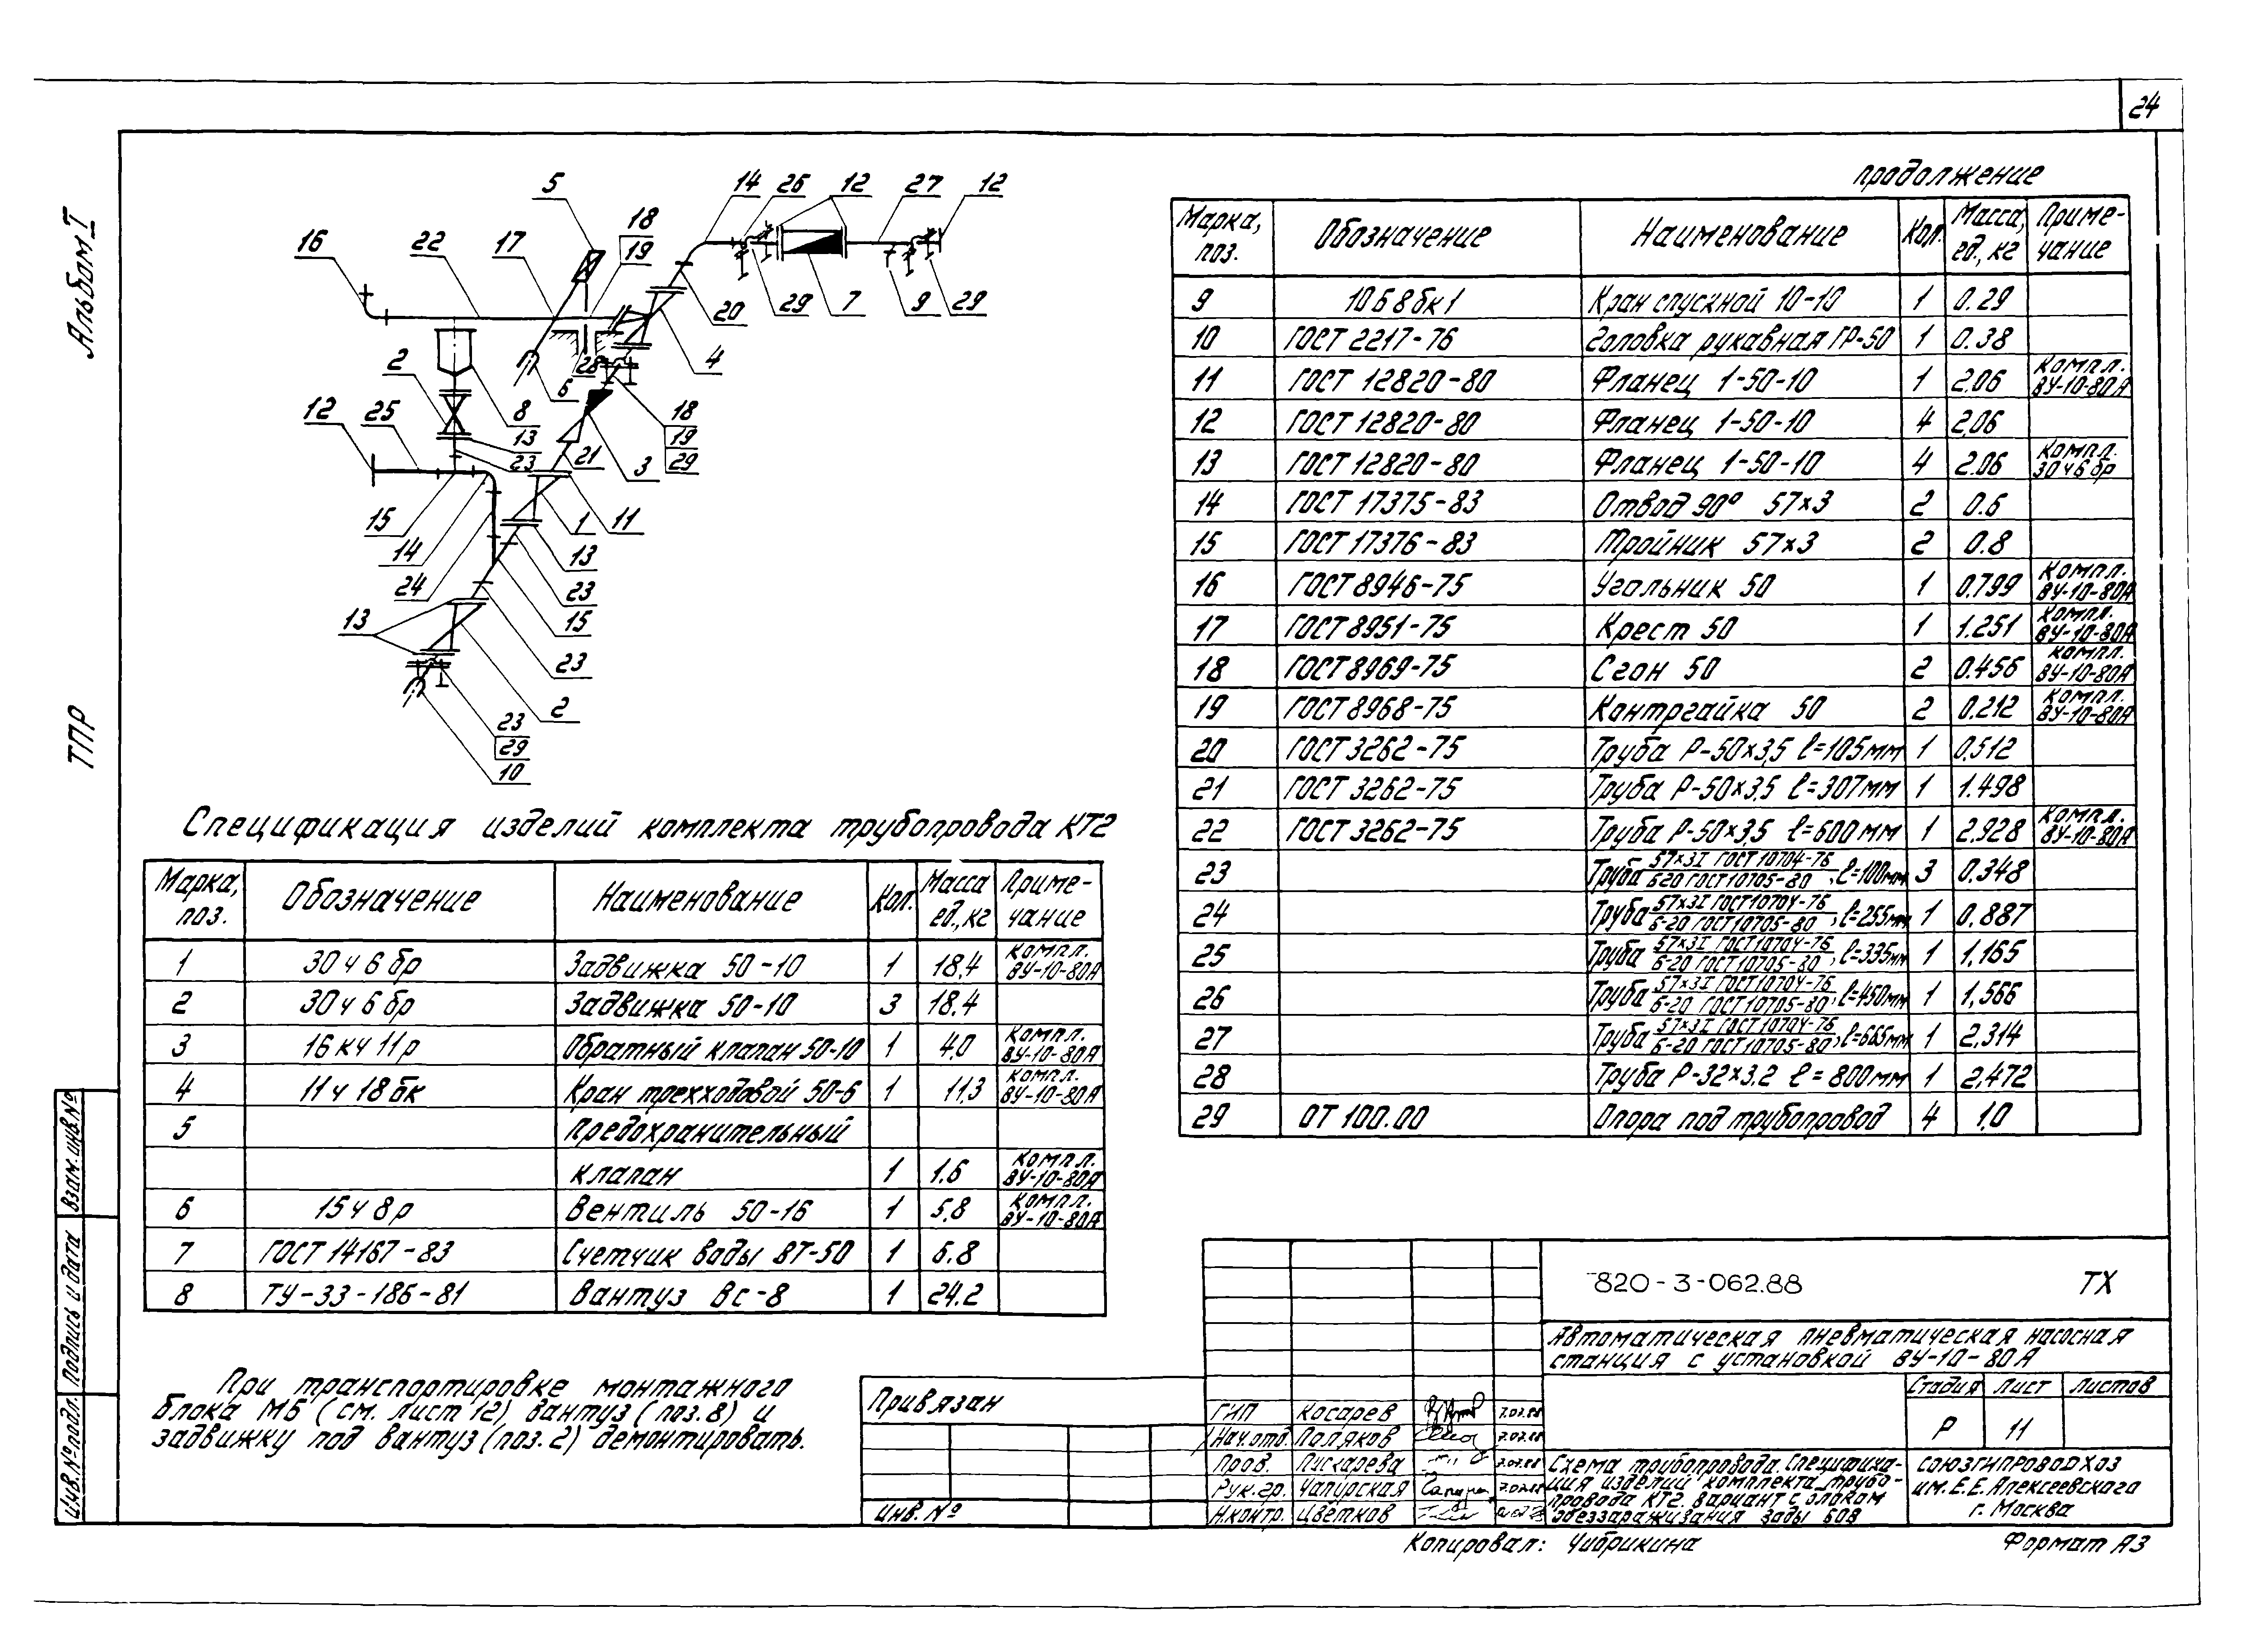 24
Альбом I
ТПР
5
14
26
12
27
12
16
22
17
18
19
20
29
7
9
29
2
28
6
4
12
25
8
13
23
21
3
18
19
29
15
14
24
1
11
13
23
15
13
23
2
23
29
10
Спецификация изделий комплекта трубопровода КТ2
Марка, поз. Обозначение Наименование Кол. Масса ед., кг Примечание
1 30ч6бр Задвижка 50-10 1 18,4 Компл. ВУ-10-80А
2 30ч6бр Задвижка 50-10 3 18,4
3 16кч11р Обратный клапан 50-10 1 4,0 Компл. ВУ-10-80А
4 11ч18бк Кран трехходовой 50-6 1 11,3 Компл. ВУ-10-80А
5 Предохранительный
клапан 1 1,6 Компл. ВУ-10-80А
6 15ч8р Вентиль 50-16 1 5,8 Компл. ВУ-10-80А
7 ГОСТ 14167-83 Счетчик воды ВТ-50 1 6.8
8 ТУ-33-186-81 Вантуз ВС-8 1 24.2
При транспортировке монтажного
блока МБ (см. лист 12) вантуз (поз. 8) и
задвижку под вантуз (поз. 2) демонтировать.
продолжение
Марка, поз. Обозначение Наименование Кол. Масса, ед., кг Примечание
9 10Б8бк1 Кран спускной 10-10 1 0.29
10 ГОСТ 2217-76 Головка рукавная ГР-50 1 0.38
11 ГОСТ 12820-80 Фланец 1-50-10 1 2.06 Компл. ВУ-10-80А
12 ГОСТ 12820-80 Фланец 1-50-10 4 2,06
13 ГОСТ 12820-80 Фланец 1-50-10 4 2.06 Компл. 30ч6бр
14 ГОСТ 17375-83 Отвод 90° 57×3 2 0.6
15 ГОСТ 17376-83 Тройник 57×3 2 0.8
16 ГОСТ 8946-75 Угольник 50 1 0.799 Компл. ВУ-10-80А
17 ГОСТ 8951-75 Крест 50 1 1.251 Компл. ВУ-10-80А
18 ГОСТ 8969-75 Сгон 50 2 0.456 Компл. ВУ-10-80А
19 ГОСТ 8968-75 Контргайка 50 2 0.212 Компл. ВУ-10-80А
20 ГОСТ 3262-75 Труба Р-50×3,5 ℓ=105мм 1 0,512
21 ГОСТ 3262-75 Труба Р-50×3,5 ℓ=307мм 1 1.498
22 ГОСТ 3262-75 Труба Р-50×3,5 ℓ=600мм 1 2.928 Компл. ВУ-10-80А
23 Труба 57×3I ГОСТ 10704-76 / Б-20 ГОСТ 10705-80, ℓ=100мм 3 0.348
24 Труба 57×3I ГОСТ 10704-76 / Б-20 ГОСТ 10705-80, ℓ=255мм 1 0.887
25 Труба 57×3I ГОСТ 10704-76 / Б-20 ГОСТ 10705-80, ℓ=335мм 1 1,165
26 Труба 57×3I ГОСТ 10704-76 / Б-20 ГОСТ 10705-80, ℓ=450мм 1 1,566
27 Труба 57×3I ГОСТ 10704-76 / Б-20 ГОСТ 10705-80, ℓ=665мм 1 2,314
28 Труба Р-32×3.2 ℓ=800мм 1 2,472
29 ОТ 100.00 Опора под трубопровод 4 1,0
820-3-062.88 ТХ
Автоматическая пневматическая насосная
станция с установкой ВУ-10-80А
Стадия Лист Листов
Р 11
Схема трубопровода. Спецификация изделий комплекта трубопровода КТ2. Вариант с блоком обеззараживания воды БОВ
СОЮЗГИПРОВОДХОЗ
им. Е.Е. Алексеевского
г. Москва
Привязан
Инв. №
ГИП Косарев 7.07.88
Нач.отд. Поляков 7.07.88
Пров. Пискарева 7.07.88
Рук.гр. Чапурская 7.07.88
Н.контр. Цветков
Копировал: Чибрикина
Формат А3
Взам.инв.№
Подпись и дата
Инв.№подл.